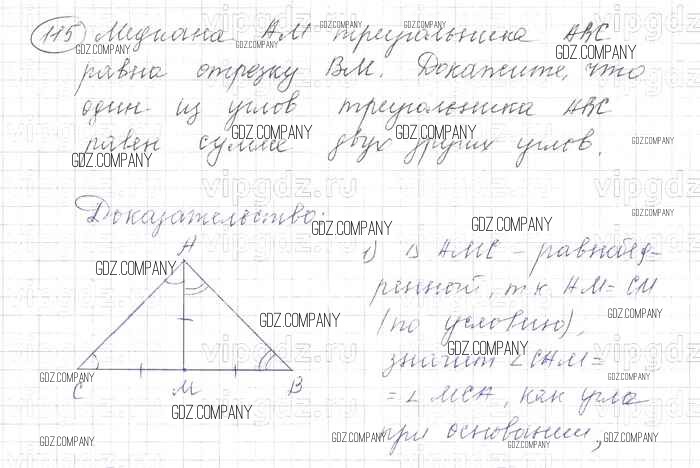 115 Медиана AM треугольника ABC
равна отрезку BM. Докажите, что
один из углов треугольника ABC
равен сумме двух других углов.
Доказательство:
A
C M B
1) Δ AMC – равнобед-
ренной, т.к. AM = CM
(по условию),
значит ∠CAM =
= ∠MCA, как угла
при основании,
GDZ.COMPANY
vipgdz.ru